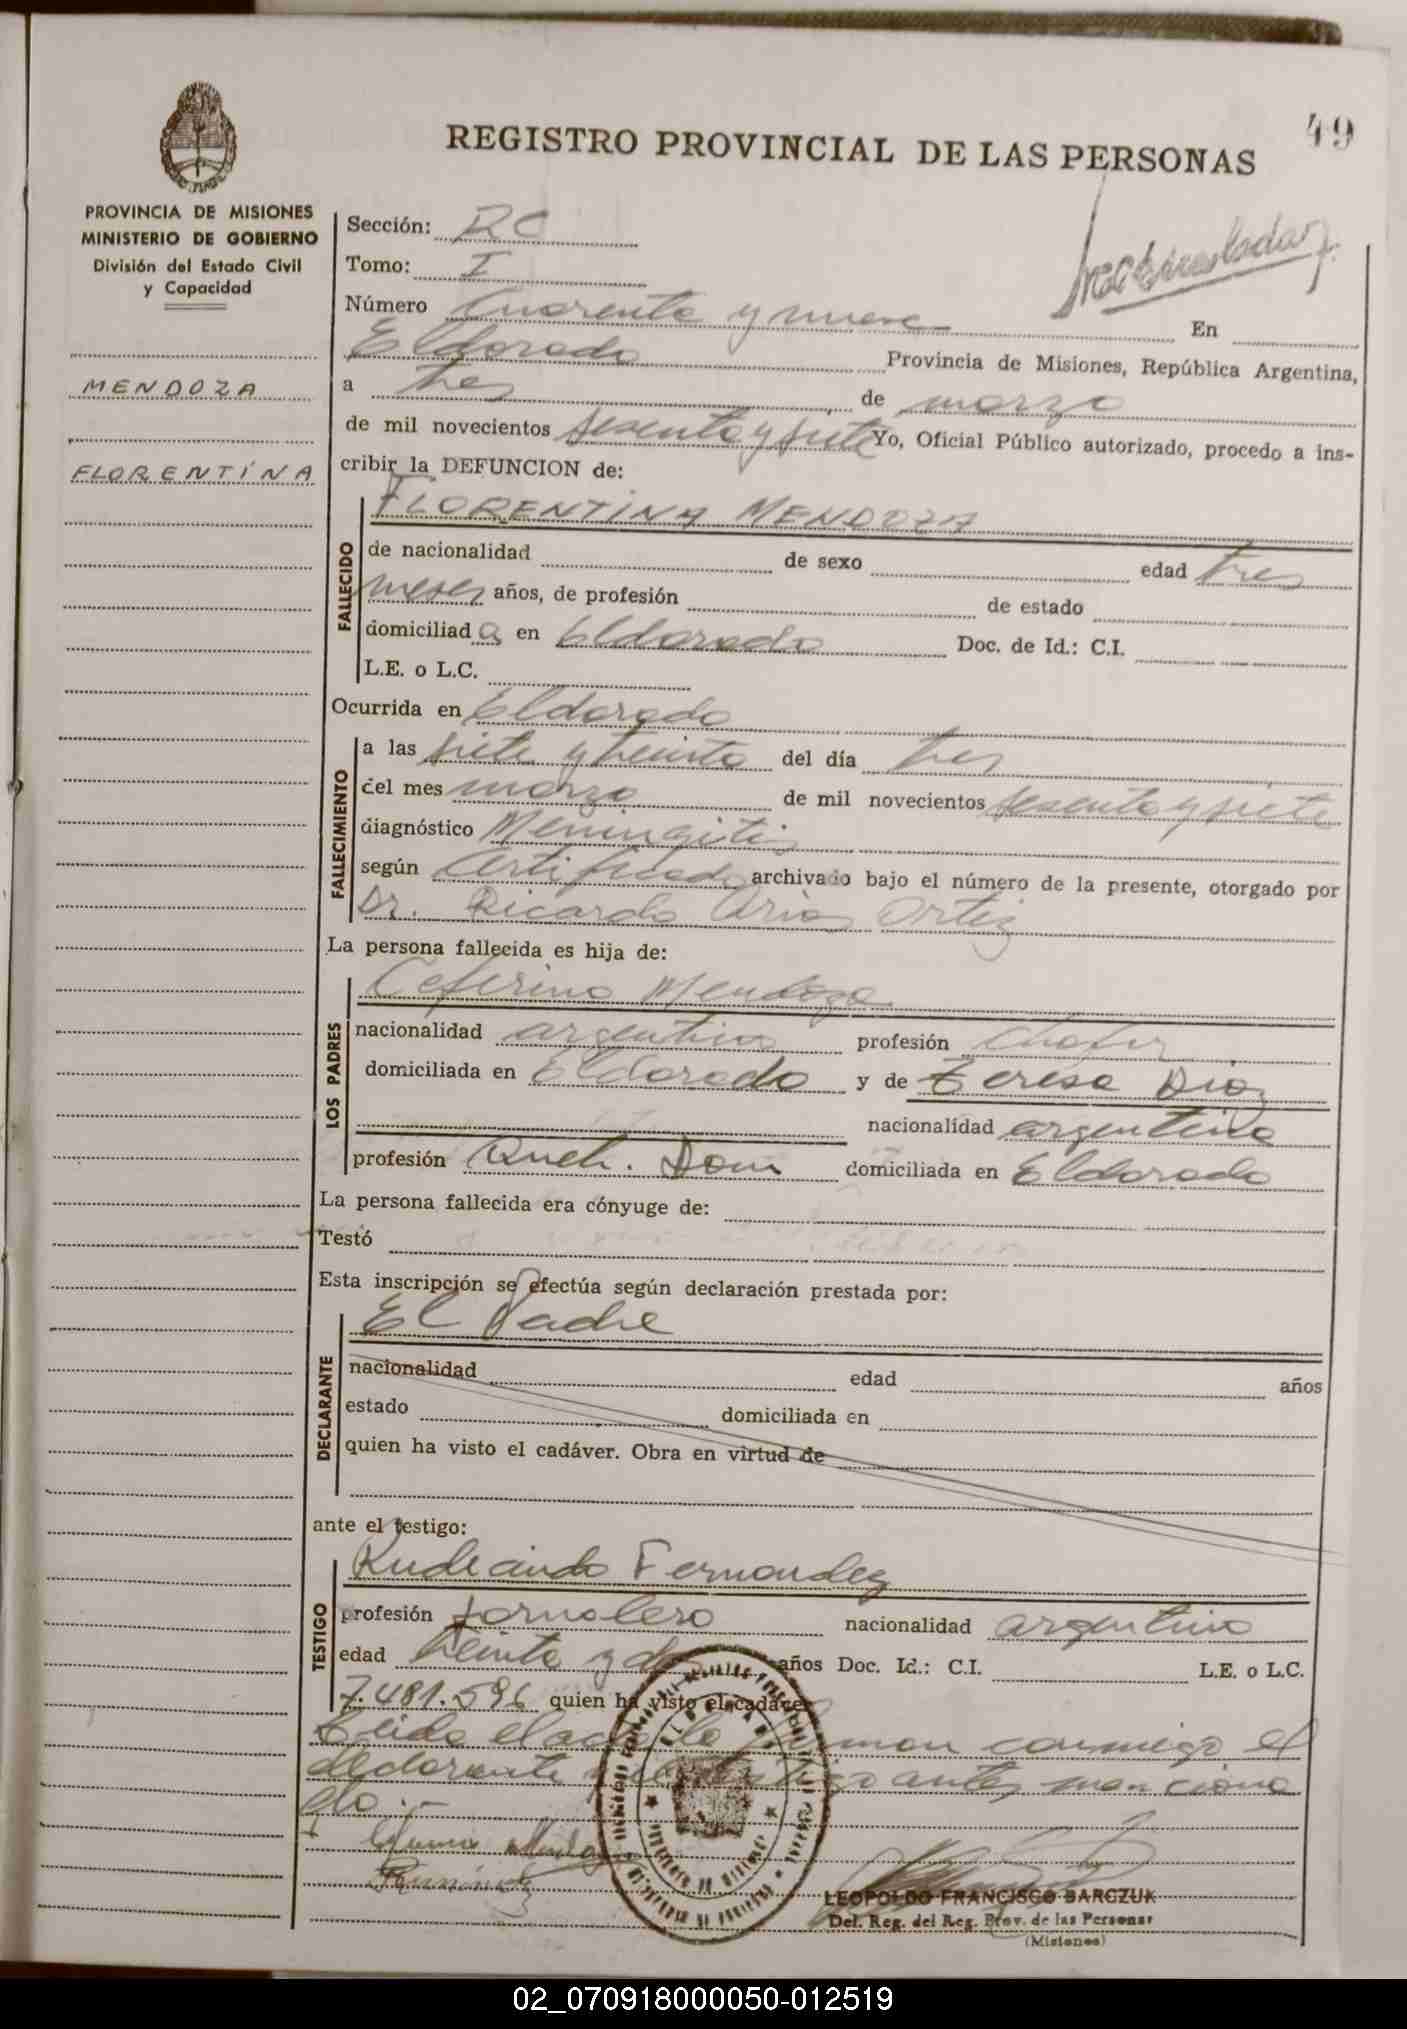 49
REGISTRO PROVINCIAL DE LAS PERSONAS
PROVINCIA DE MISIONES
MINISTERIO DE GOBIERNO
División del Estado Civil
y Capacidad
MENDOZA
FLORENTINA
Sección:
Tomo: I
Número Cuarenta y nueve En
Eldorado Provincia de Misiones, República Argentina,
a tres de marzo
de mil novecientos sesenta y siete Yo, Oficial Público autorizado, procedo a ins-
cribir la DEFUNCION de:
FALLECIDO
FLORENTINA MENDOZA
de nacionalidad de sexo edad tres
meses años, de profesión de estado
domiciliada en Eldorado Doc. de Id.: C.I.
L.E. o L.C.
Ocurrida en Eldorado
FALLECIMIENTO
a las siete y treinta del día tres
del mes marzo de mil novecientos sesenta y siete
diagnóstico Meningitis
según certificado archivado bajo el número de la presente, otorgado por
Dr. Ricardo Arias Ortiz
La persona fallecida es hija de:
LOS PADRES
Ceferino Mendoza
nacionalidad argentino profesión chofer
domiciliada en Eldorado y de Teresa Diaz
nacionalidad argentina
profesión Queh. Dom domiciliada en Eldorado
La persona fallecida era cónyuge de:
Testó
Esta inscripción se efectúa según declaración prestada por:
DECLARANTE
El Padre
nacionalidad edad años
estado domiciliada en
quien ha visto el cadáver. Obra en virtud de
ante el testigo:
TESTIGO
Fernandez
profesión Jornalero nacionalidad argentino
edad treinta y dos años Doc. Id.: C.I. L.E. o L.C.
7.481.596 quien ha visto el cadáver
Leida el acta la firman conmigo el
declarante y el testigo antes menciona
do.-
LEOPOLDO FRANCISCO BARCZUK
Del. Reg. del Reg. Prov. de las Personas
(Misiones)
02_070918000050-012519